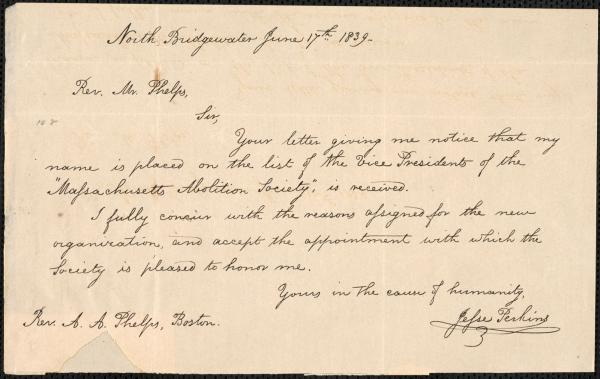 North Bridgewater June 17th 1839.
Rev. Mr. Phelps,
Sir,
Your letter giving me notice that my
name is placed on the list of the Vice Presidents of the
"Massachusetts Abolition Society", is received.
I fully concur with the reasons assigned for the new
organization, and accept the appointment with which the
Society is pleased to honor me.
Yours in the cause of humanity,
Jesse Perkins
Rev. A. A. Phelps, Boston.